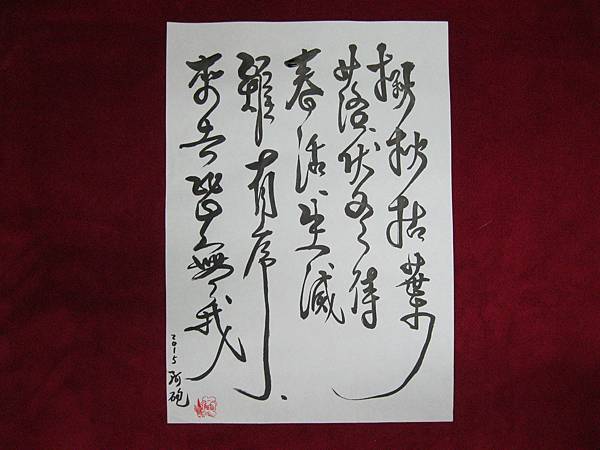 秋枯葉
落伏冬待
春活生滅
雖有序、
來去皆無我
2015 阿砲